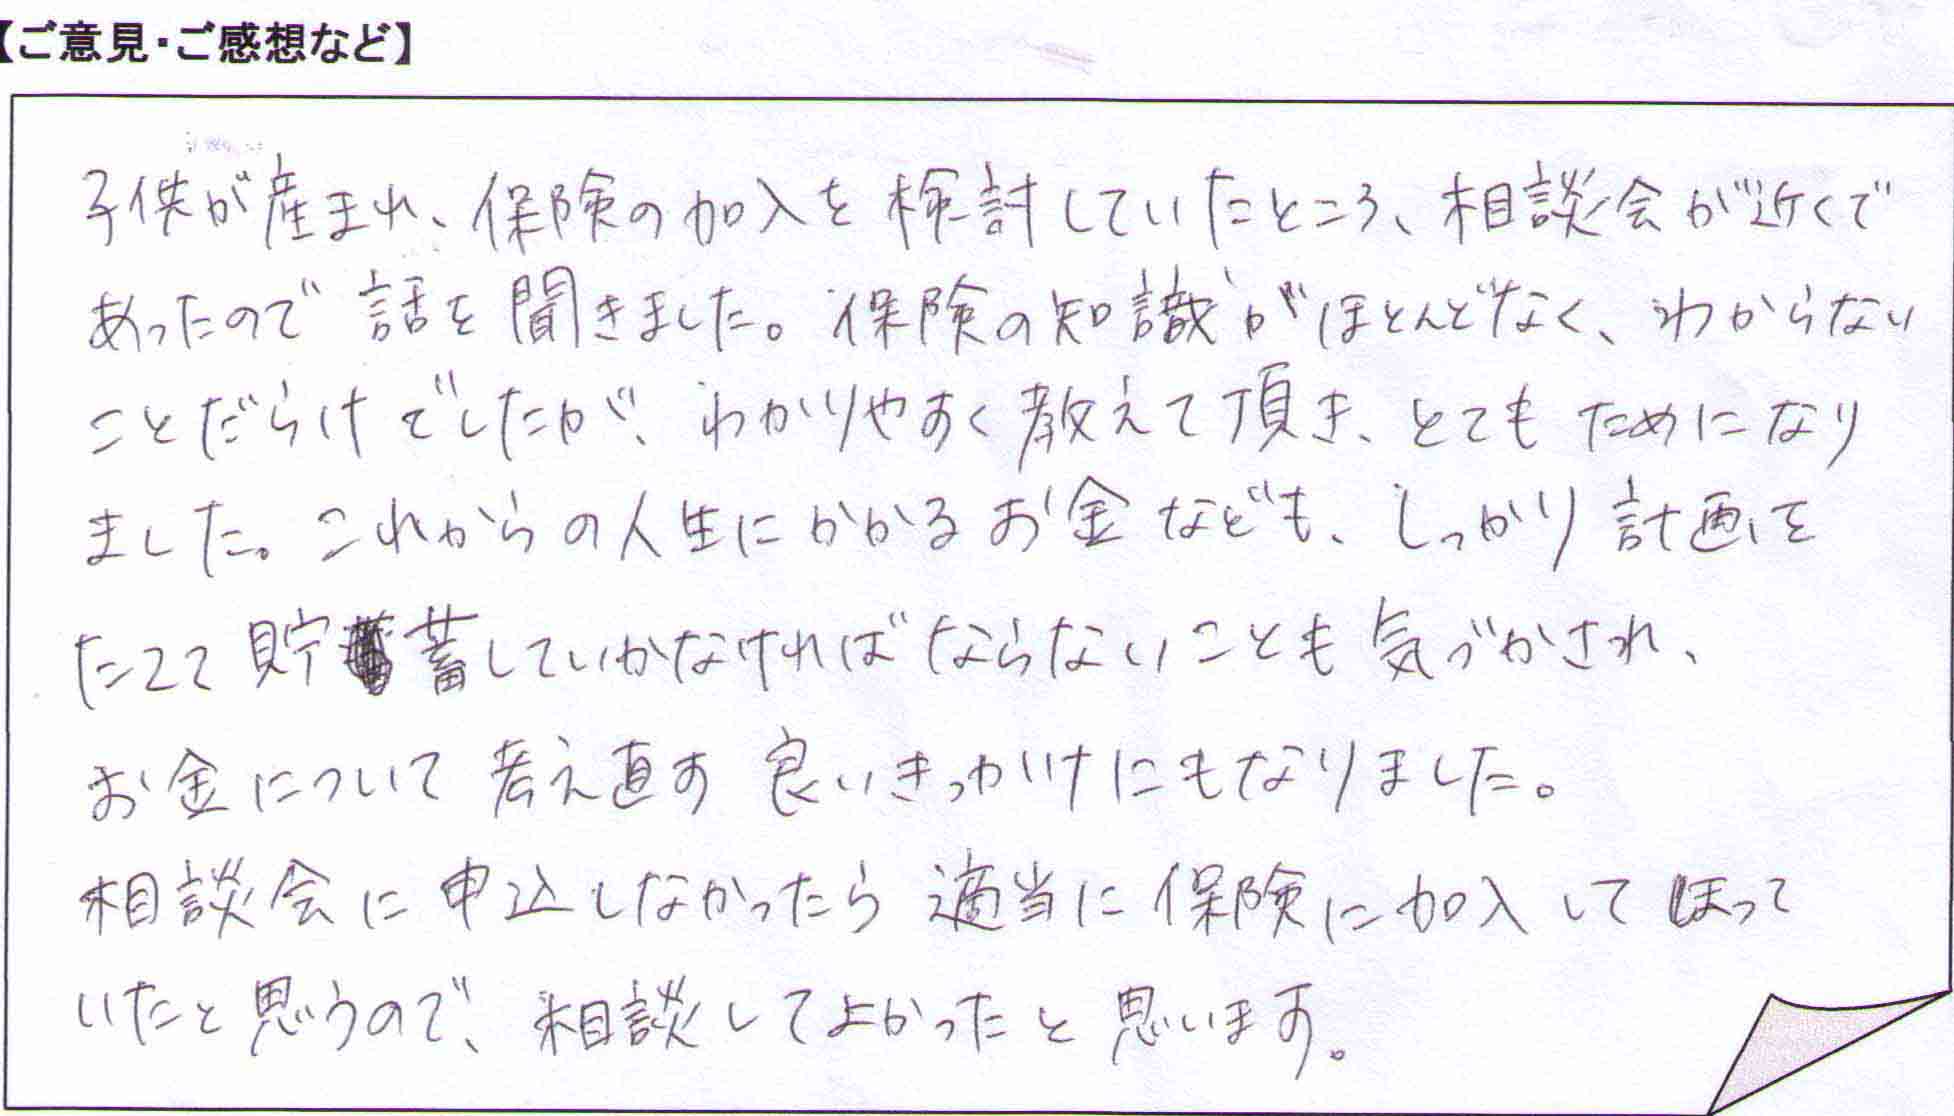 【ご意見・ご感想など】
子供が産まれ、保険の加入を検討していたところ、相談会が近くで
あったので話を聞きました。保険の知識がほとんどなく、わからない
ことだらけでしたが、わかりやすく教えて頂き、とてもためになり
ました。これからの人生にかかるお金なども、しっかり計画を
たてて貯蓄していかなければならないことも気づかされ、
お金について考え直す良いきっかけにもなりました。
相談会に申込しなかったら適当に保険に加入してしまって
いたと思うので、相談してよかったと思います。